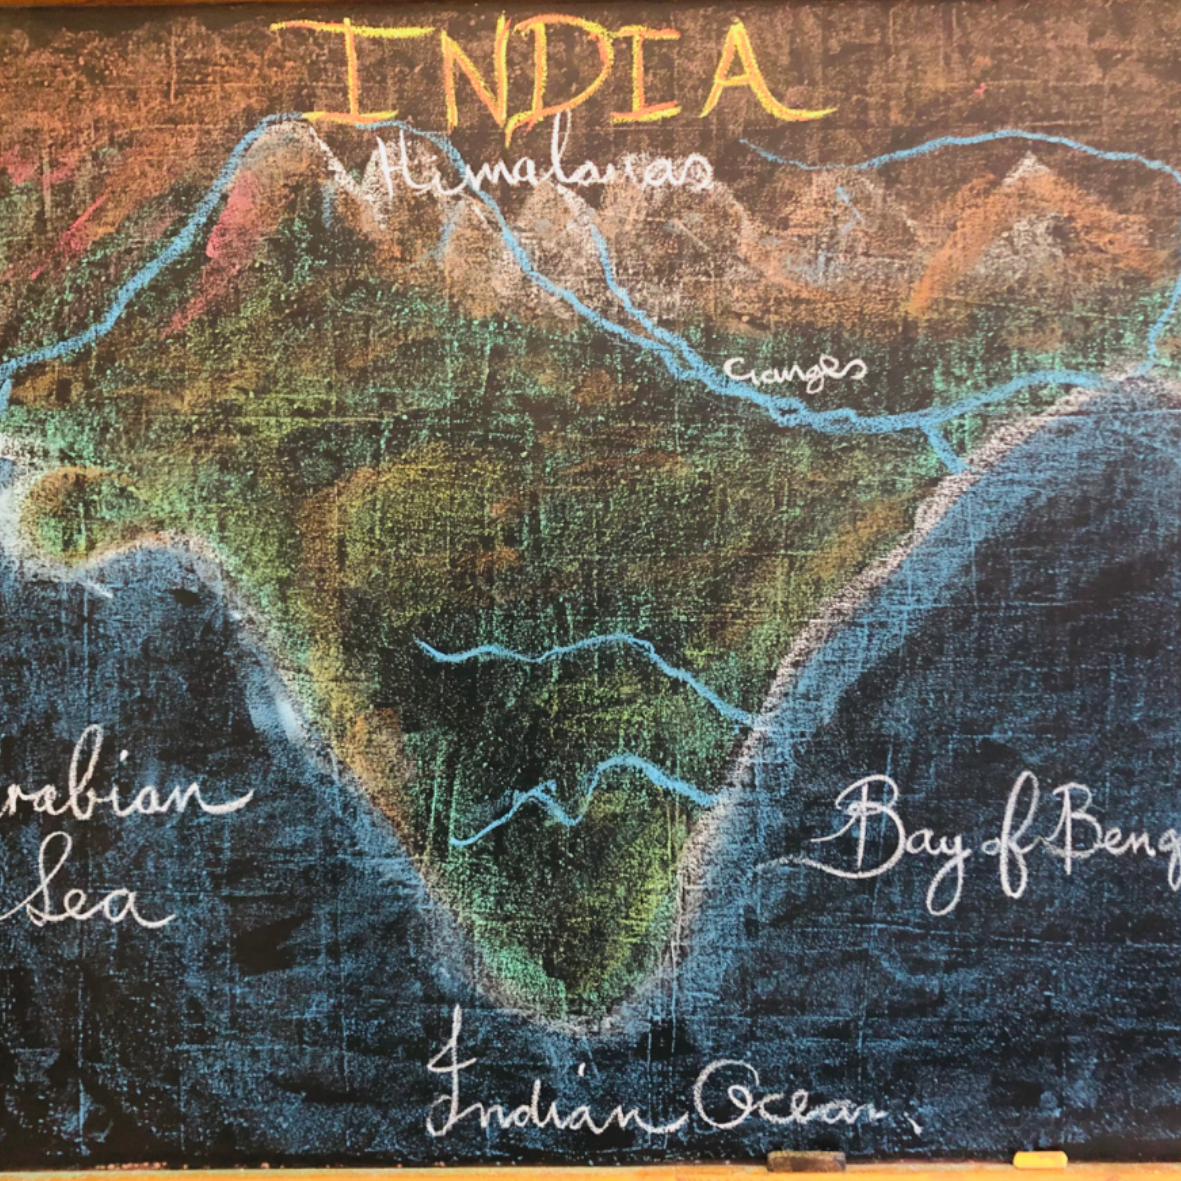 INDIA
Himalayas
Ganges
rabian
Sea
Bay of Beng
Indian Ocean